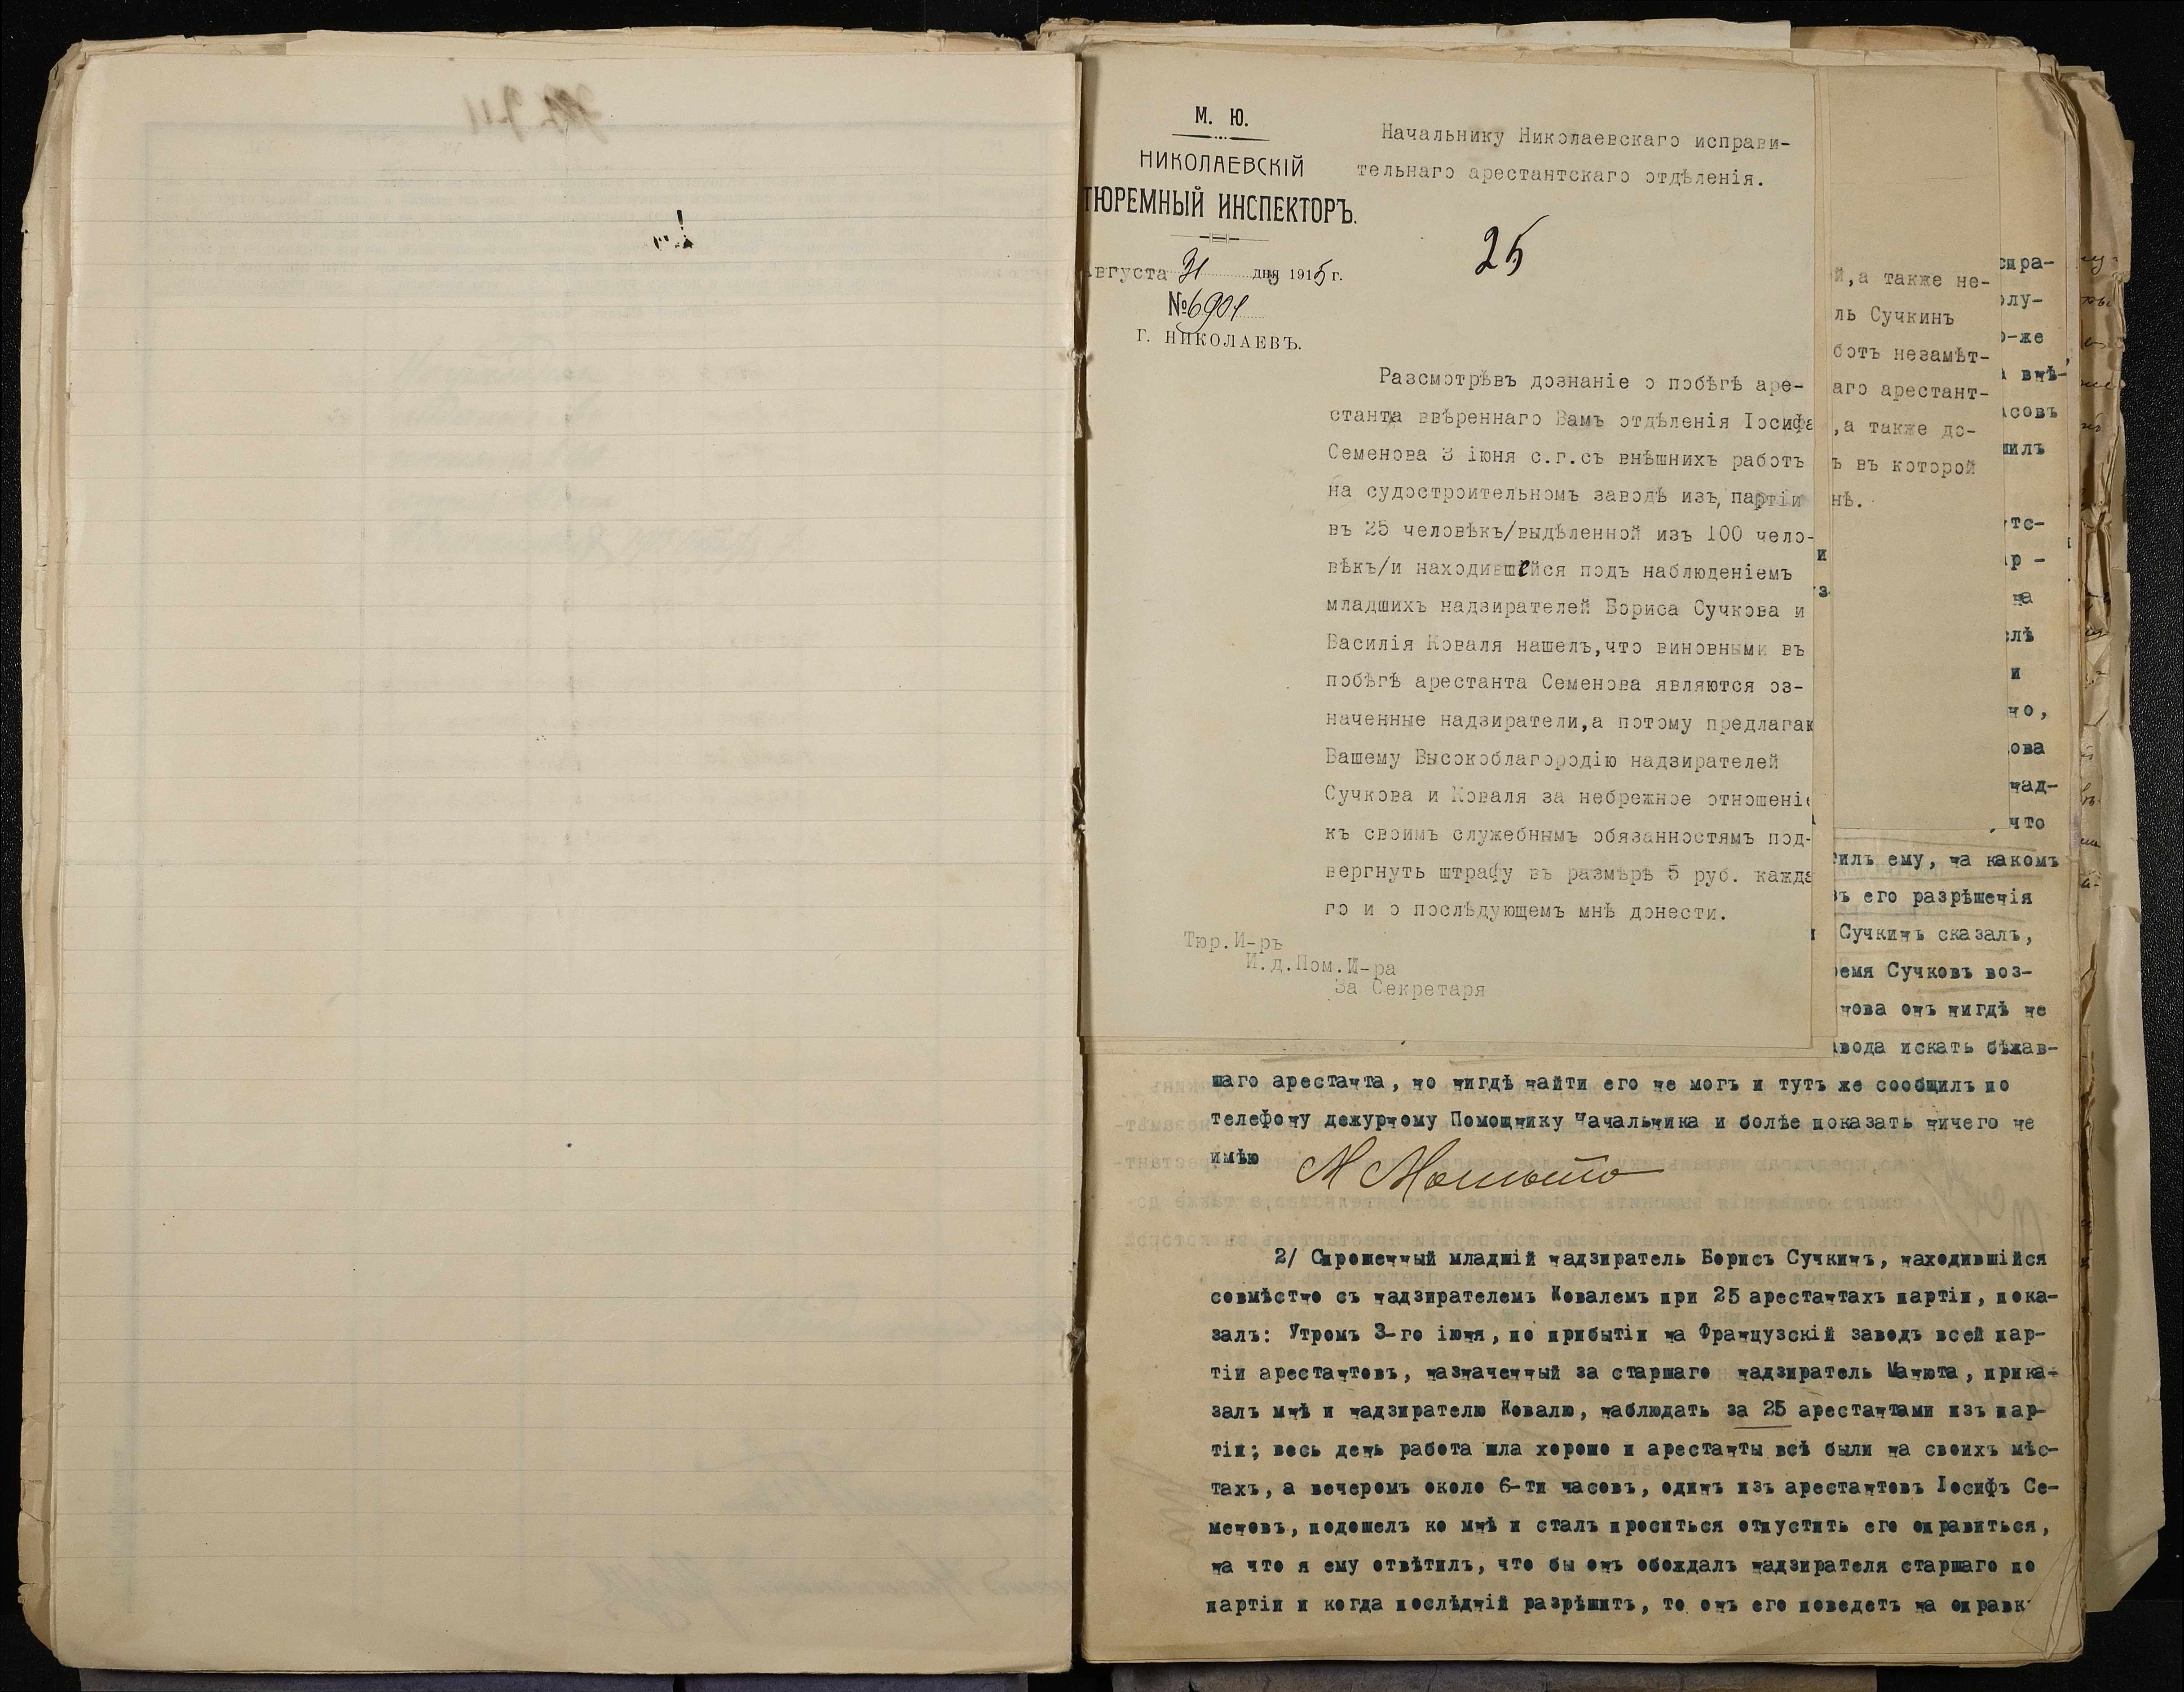 М. Ю.
НИКОЛАЕВСКІЙ
ТЮРЕМНЫЙ ИНСПЕКТОРЪ.
Августа 31 дня 1915 г.
№ 6901
Г. НИКОЛАЕВЪ.
Начальнику Николаевскаго исправи-
тельнаго арестантскаго отдѣленія.
25
Разсмотрѣвъ дознаніе о побѣгѣ аре-
станта ввѣреннаго Вамъ отдѣленія Іосифа
Семенова 3 іюня с.г.съ внѣшнихъ работъ
на судостроительномъ заводѣ изъ, партіи
въ 25 человѣкъ/выдѣленной изъ 100 чело-
вѣкъ/и находившейся подъ наблюденіемъ
младшихъ надзирателей Бориса Сучкова и
Василія Коваля нашелъ,что виновными въ
побѣгѣ арестанта Семенова являются оз-
наченные надзиратели,а потому предлагаю
Вашему Высокоблагородію надзирателей
Сучкова и Коваля за небрежное отношеніе
къ своимъ служебнымъ обязанностямъ под-
вергнуть штрафу въ размѣрѣ 5 руб. каждa
го и о послѣдующемъ мнѣ донести.
Тюр.И-ръ
И.д.Пом.И-ра
За Секретаря
й,а также не-
ль Сучкинъ
ботъ незамѣт-
аго арестант-
,а также до-
ъ въ которой
нѣ.
и
з
спра-
олу-
о-же
а внѣ-
асовъ
шилъ
утс-
ар -
на
слѣ
и
но,
ова
над-
что
тилъ ему, на какомъ
зъ его разрѣшенія
Сучкинъ сказалъ,
ремя Сучковъ воз-
нова онъ нигдѣ не
авода искать бѣжав-
шаго арестанта, но нигдѣ найти его не могъ и тутъ же сообщилъ по
телефону дежурному Помощнику Начальника и болѣе показать ничего не
имѣю
2/ Спрошенный младшій надзиратель Борисъ Сучкинъ, находившійся
совмѣстно съ надзирателемъ Ковалемъ при 25 арестантахъ партіи, пока-
залъ: Утромъ 3-го іюня, по прибытіи на Французскій заводъ всей пар-
тіи арестантовъ, назначенный за старшаго надзиратель Манюта, прика-
залъ мнѣ и надзирателю Ковалю, наблюдать за 25 арестантами изъ пар-
тіи; весь день работа шла хорошо и арестанты всѣ были на своихъ мѣс-
тахъ, а вечеромъ около 6-ти часовъ, одинъ изъ арестантовъ Іосифъ Се-
меновъ, подошелъ ко мнѣ и сталъ проситься отпустить его оправиться,
на что я ему отвѣтилъ, что бы онъ обождалъ надзирателя старшаго по
партіи и когда послѣдній разрѣшитъ, то онъ его поведетъ на оправк